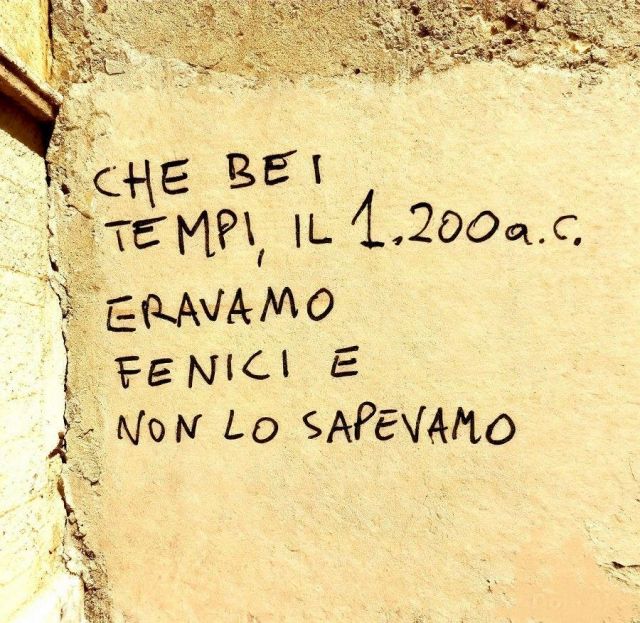 CHE BEI
TEMPI, IL 1.200 a.C.
ERAVAMO
FENICI E
NON LO SAPEVAMO